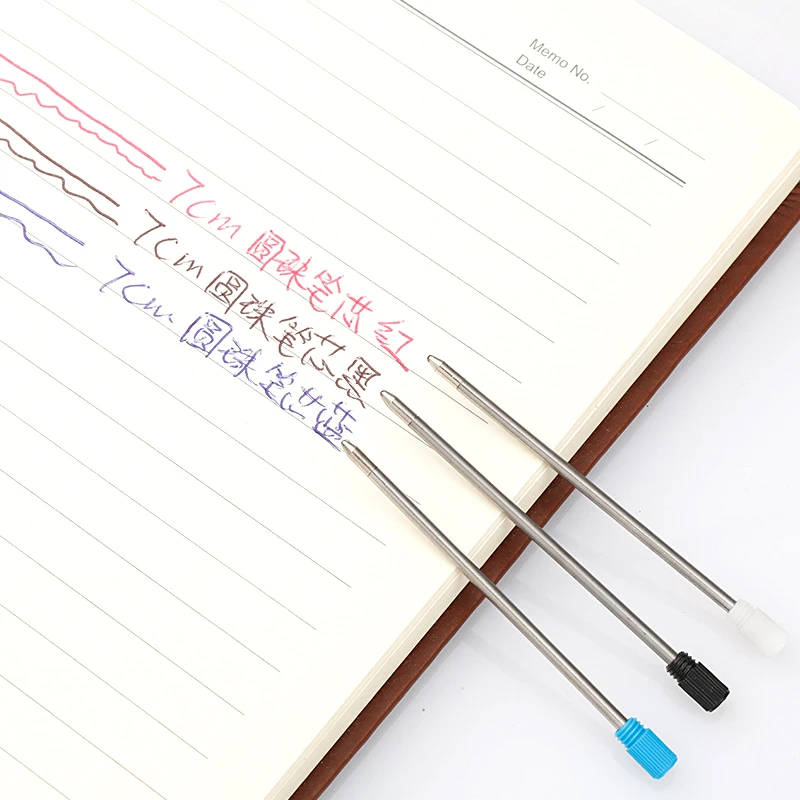 Memo No.
Date / /
7cm 圆珠笔芯红
7cm 圆珠笔芯黑
7cm 圆珠笔芯蓝